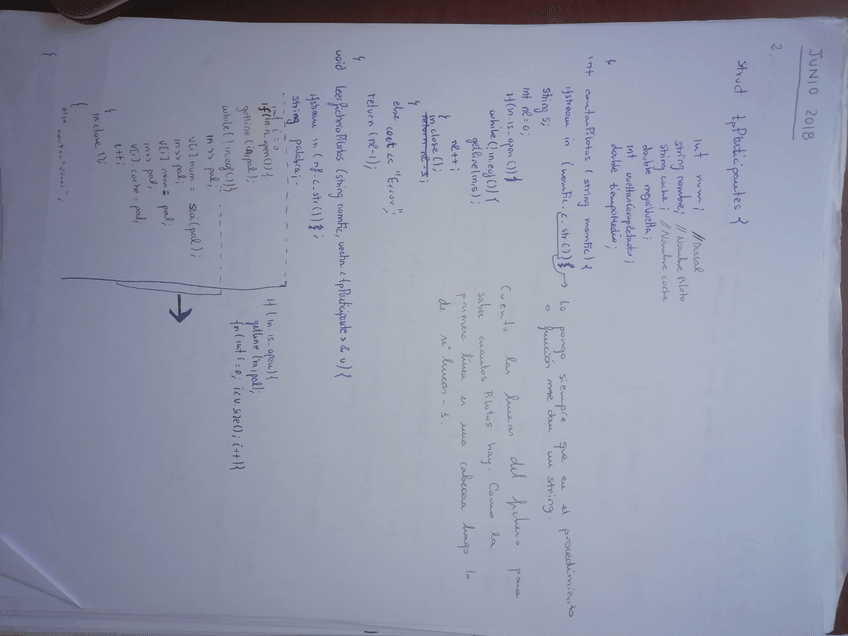 JUNIO 2018
2.
struct tpParticipantes {
int num; //Dorsal
string nombre; //Nombre Piloto
string coche; //Nombre coche
double mejorVuelta;
int vueltasCompletadas;
double tiempoMedio;
}
int contarPilotos (string nomfic) {
ifstream in (nomfic.c_str()); → lo pongo siempre que en el procedimiento
o función me dan un string.
string s;
int nl=0;
if(in.is_open()){
while(!in.eof()){
getline(in,s);
nl++;
}
in.close();
return nl-1;
}
else cout << "Error";
return (nl-1);
}
Cuento las lineas del fichero para
saber cuantos Pilotos hay. Como la
primera linea es una cabecera hago lo
de nº lineas - 1.
void leerficheroPilotos (string nomfic, vector<tpParticipantes>& v) {
ifstream in (nf.c_str());
string palabra;
int i=0
if(in.is_open){
getline(in,pal);
while(!in.eof()){
in>> pal;
v[i].num = stoi(pal);
in>> pal;
v[i].nom = pal;
in>> pal;
v[i].coche = pal;
i++;
}
in.close();
}
else cout<<"error";
}
if (in.is_open){
getline(in,pal);
for(int i=0; i<v.size(); i++){